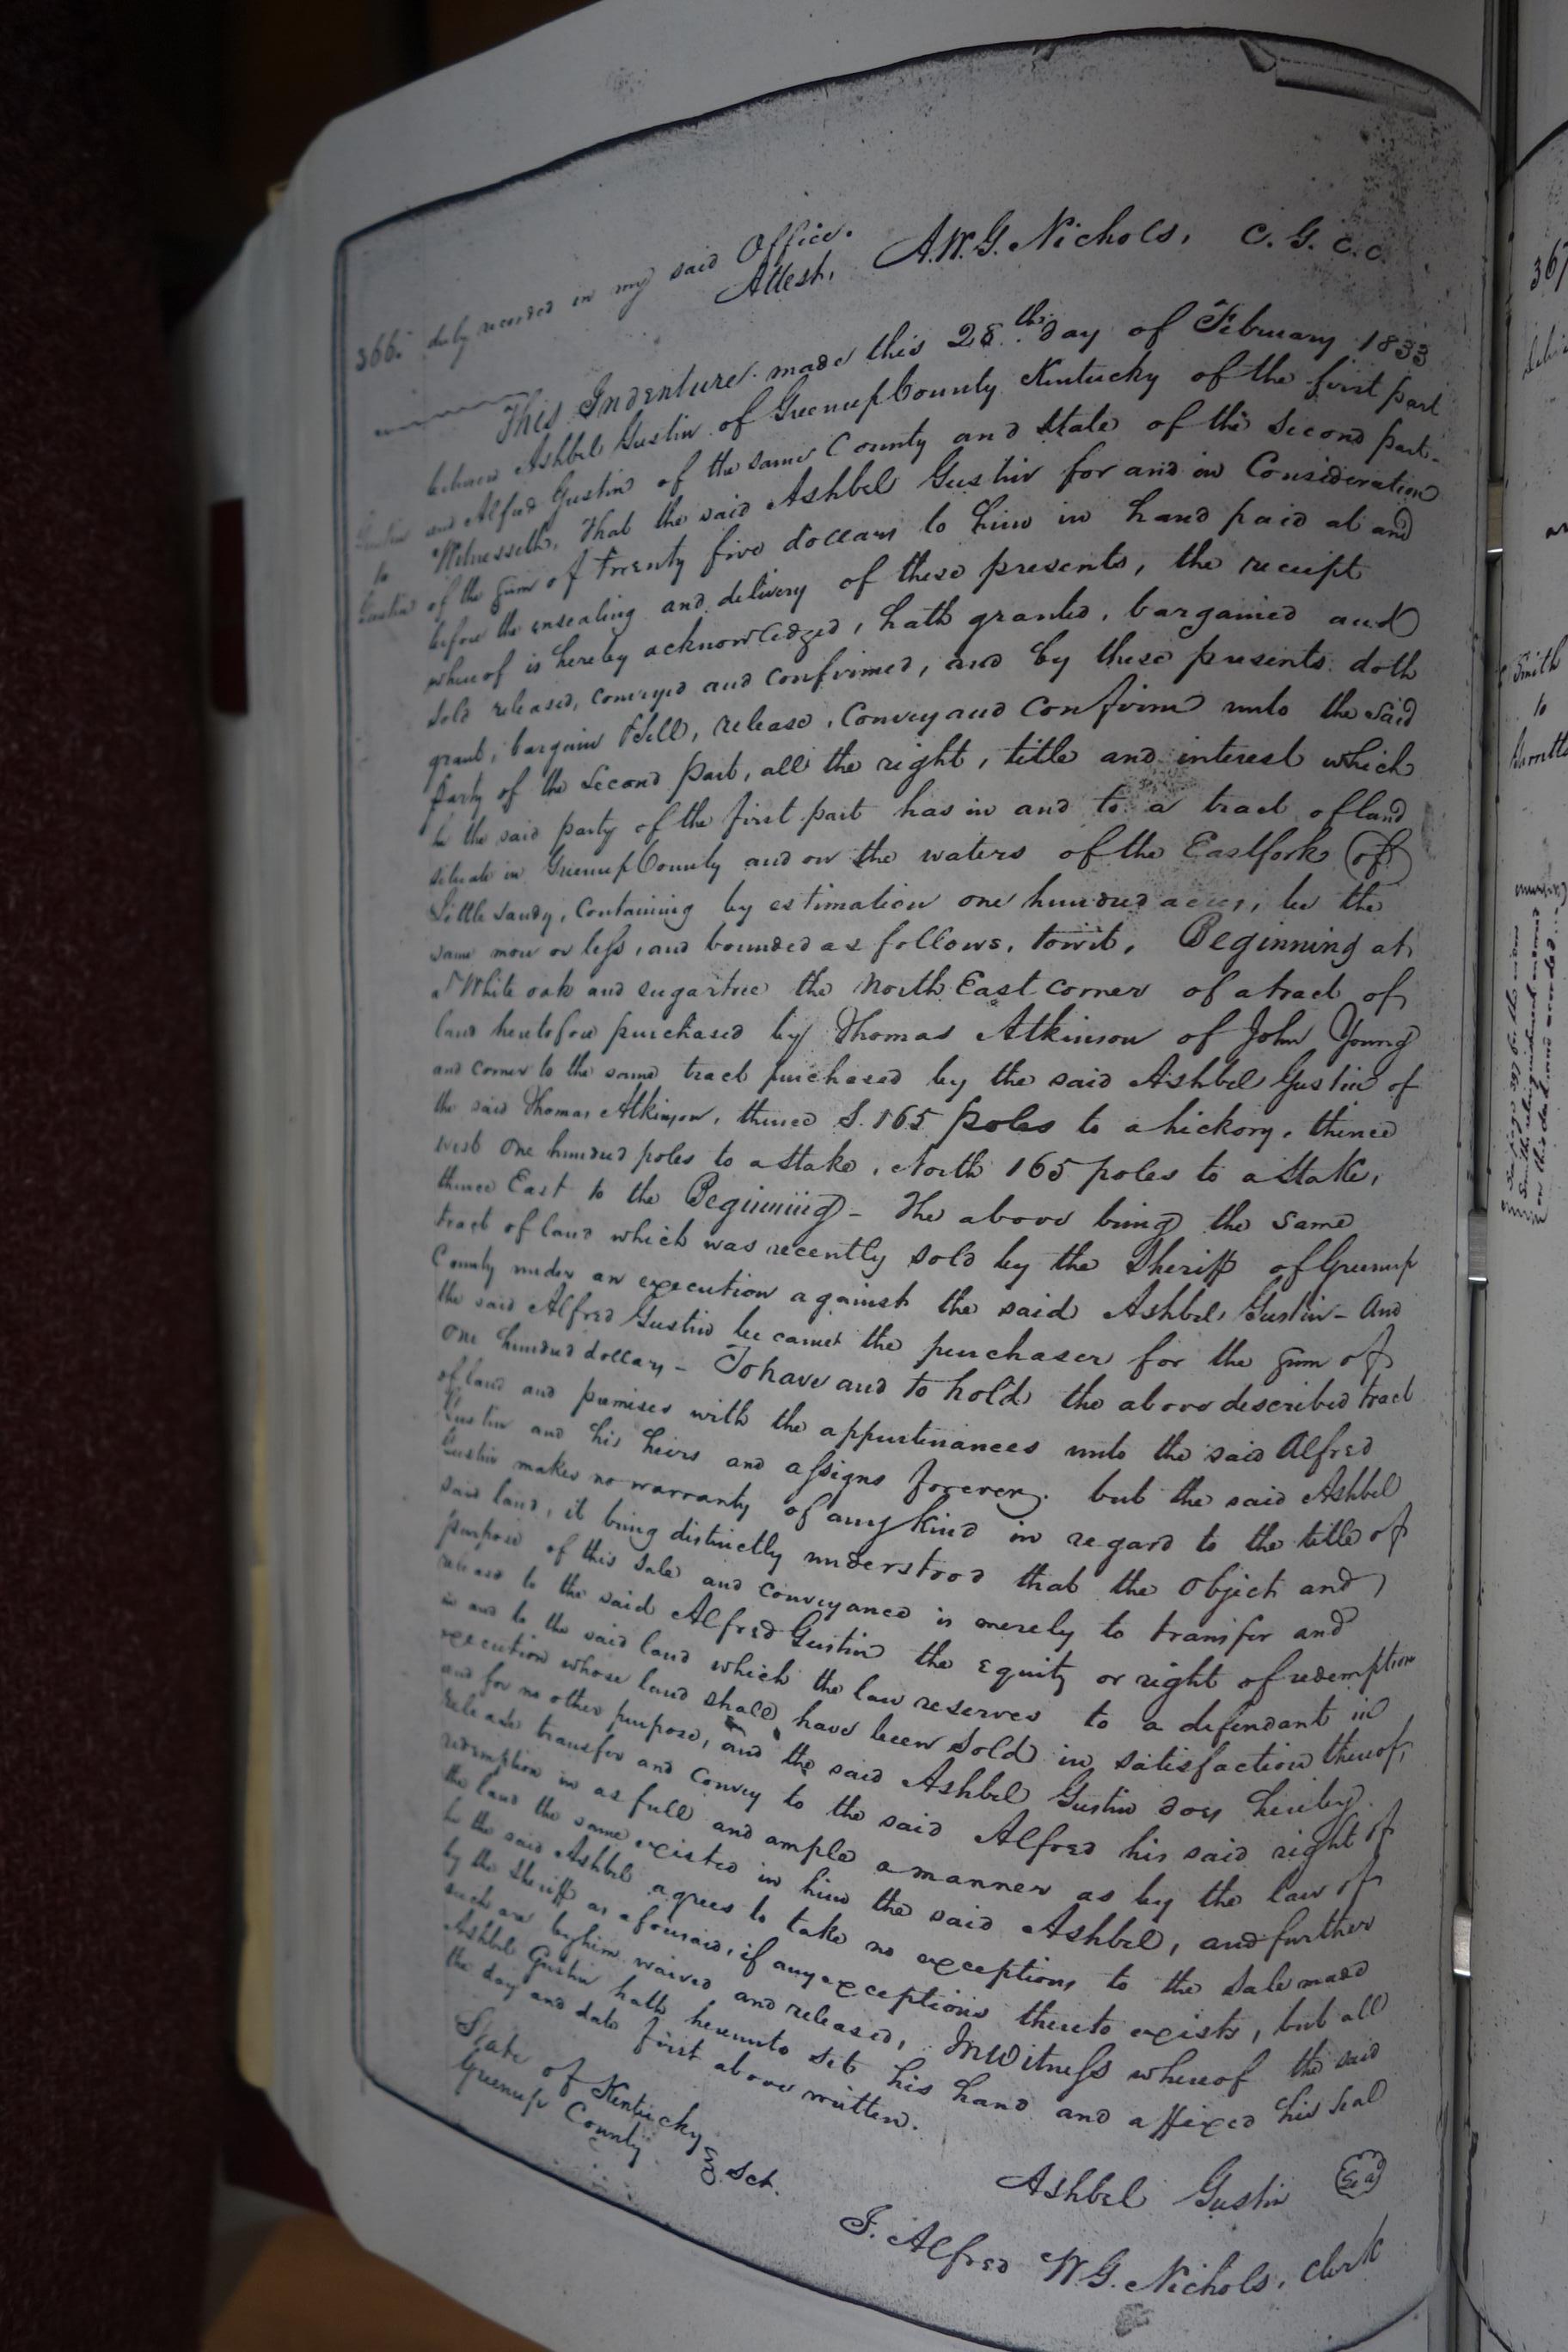 366. duly recorded in my said Office.
Attest, A.W.G. Nichols, C.G.C.C.
This Indenture made this 28th day of February 1833
between Ashbel Gustin of Greenup County Kentucky of the first part
and Alfred Gustin of the same County and State of the Second part.
Gustin
to
Gustin
Witnesseth, That the said Ashbel Gustin for and in Consideration
of the sum of Twenty five dollars to him in hand paid at and
before the ensealing and delivery of these presents, the receipt
whereof is hereby acknowledged, hath granted, bargained and
sold released, conveyed and confirmed, and by these presents doth
grant, bargain Sell, release, Convey and Confirm unto the said
party of the Second Part, all the right, title and interest which
he the said party of the first part has in and to a tract of land
situate in Greenup County and on the waters of the East fork of
Little Sandy, Containing by estimation one hundred acres, be the
same more or less, and bounded as follows, towit, Beginning at
a White oak and sugartree the North East corner of a tract of
land heretofore purchased by Thomas Atkinson of John Young
and corner to the same tract purchased by the said Ashbel Gustin of
the said Thomas Atkinson, thence S. 165 poles to a hickory, thence
west One hundred poles to a Stake, North 165 poles to a Stake,
thence East to the Beginning - The above being the same
tract of land which was recently sold by the Sheriff of Greenup
County under an execution against the said Ashbel Gustin - And
the said Alfred Gustin became the purchaser for the sum of
One hundred dollars - To have and to hold the above described tract
of land and premises with the appurtenances unto the said Alfred
Gustin and his heirs and assigns forever. but the said Ashbel
Gustin makes no warranty of any kind in regard to the title of
said land, it being distinctly understood that the Object and
purpose of this Sale and conveyance is merely to transfer and
release to the said Alfred Gustin the Equity or right of redemption
in and to the said land which the law reserves to a defendant in
execution whose land shall have been Sold in satisfaction thereof,
and for no other purpose, and the said Ashbel Gustin does hereby
release transfer and convey to the said Alfred his said right of
redemption in as full and ample a manner as by the law of
the land the same existed in him the said Ashbel, and further
he the said Ashbel agrees to take no exceptions to the Sale made
by the Sheriff as aforesaid, if any exceptions thereto exists, but all
such are by him waived and released, In Witness whereof the said
Ashbel Gustin hath hereunto set his hand and affixed his Seal
the day and date first above written.
Ashbel Gustin Seal
State of Kentucky
Greenup County Sct.
I. Alfred W.G. Nichols, Clerk
367
Smith
to